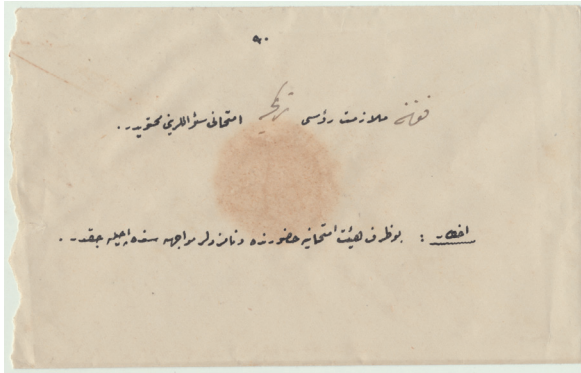 ٩٠
ملازمت رؤسی امتحانی سؤاللرینی محتویدر.
اخطار : بو ظرف هیئت امتحانیه حضورنده و نامزدلر مواجهه سنده آچیله جقدر.